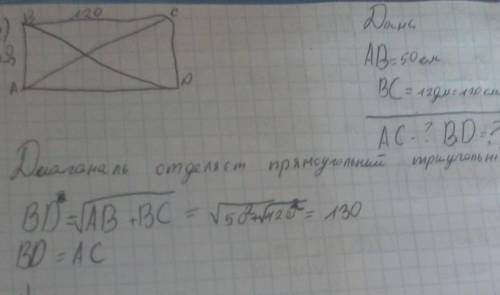 B 120 C
A D
Дано
AB=50 см
BC=12дм=120см
AC-? BD=?
Диаганаль отделяет прямоугольний триугольн
BD²=√AB+BC = √50²+√120² = 130
BD = AC